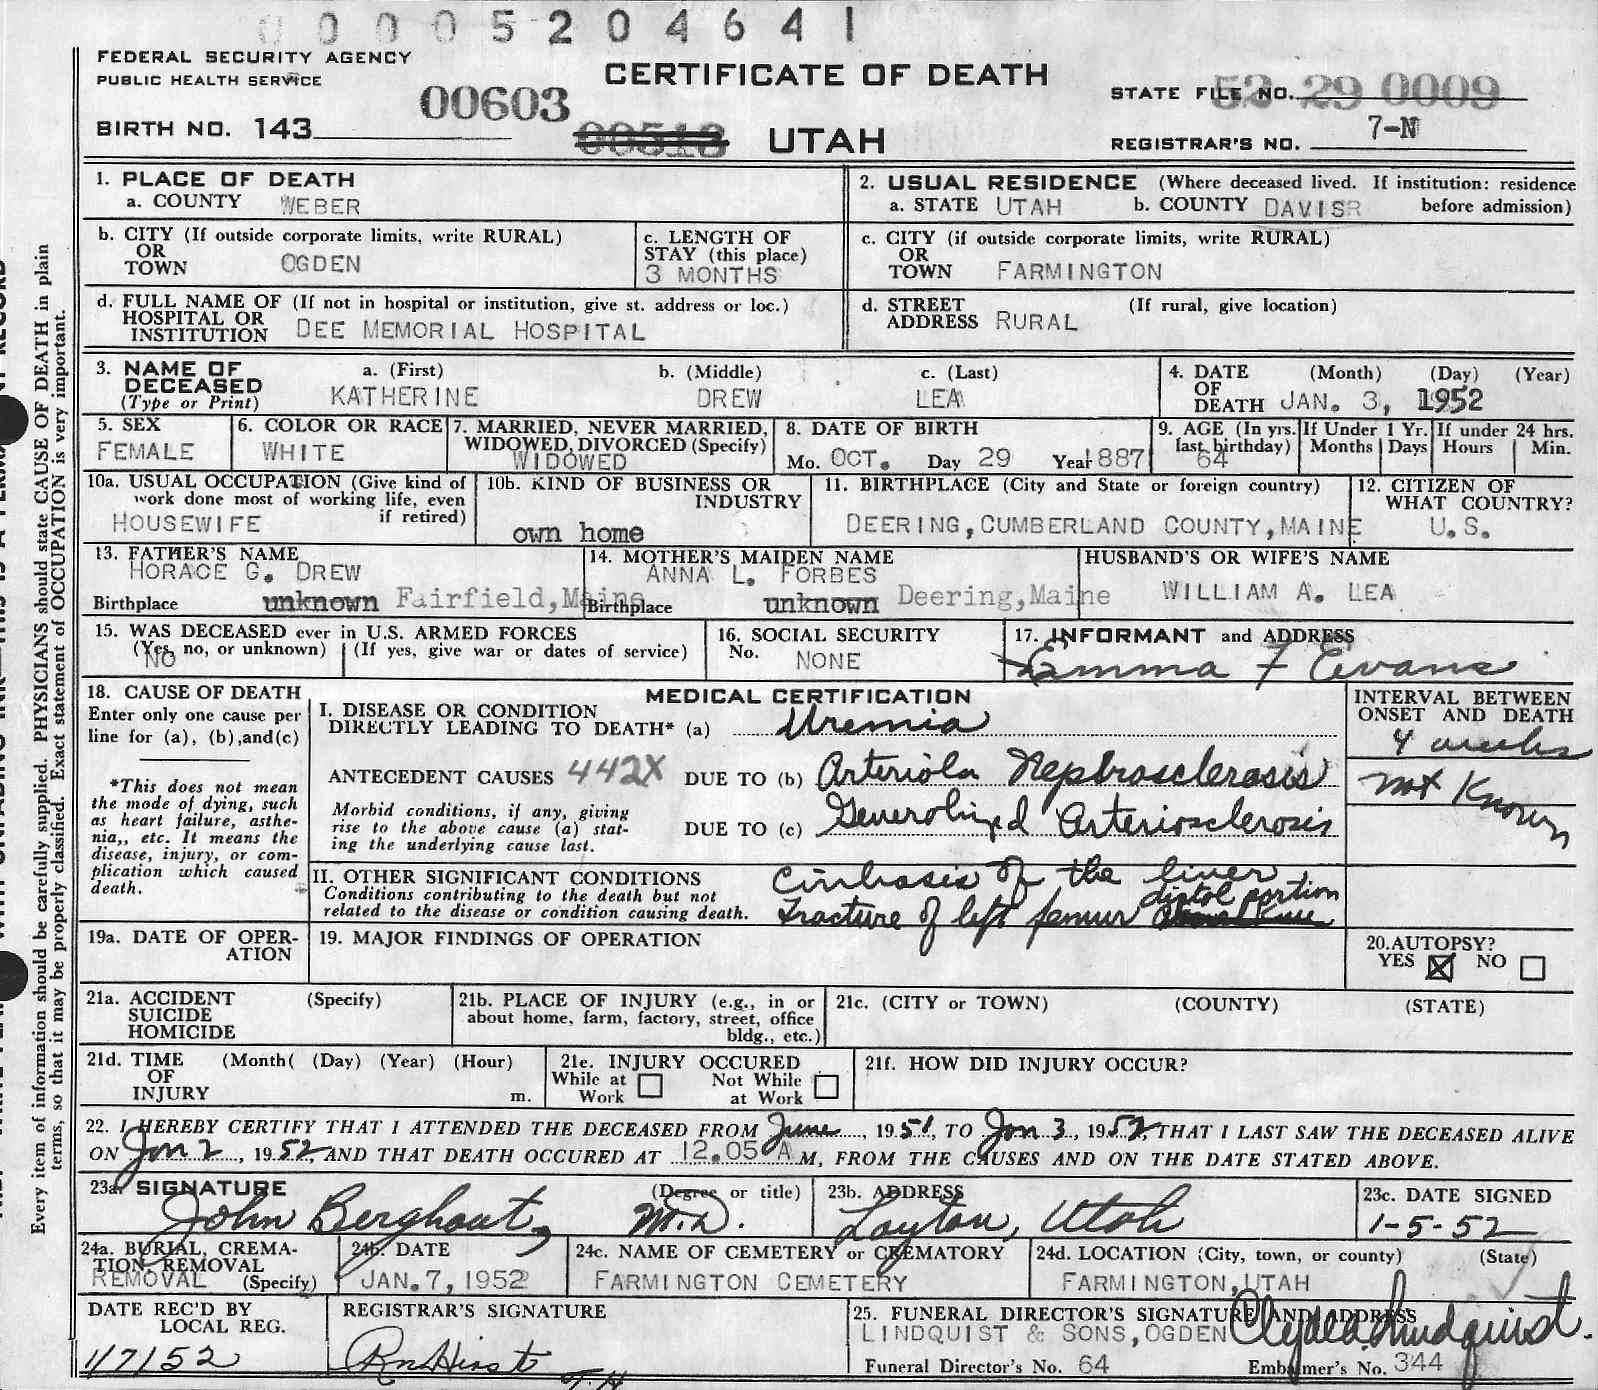 0 0 0 5 2 0 4 6 4 1
FEDERAL SECURITY AGENCY
PUBLIC HEALTH SERVICE
CERTIFICATE OF DEATH
00603
STATE FILE NO. 52 29 0009
BIRTH NO. 143
00518
UTAH
7-N
REGISTRAR'S NO.
1. PLACE OF DEATH
a. COUNTY WEBER
2. USUAL RESIDENCE (Where deceased lived. If institution: residence
a. STATE UTAH b. COUNTY DAVIS before admission)
b. CITY (If outside corporate limits, write RURAL)
OR
TOWN OGDEN
c. LENGTH OF
STAY (this place)
3 MONTHS
c. CITY (if outside corporate limits, write RURAL)
OR
TOWN FARMINGTON
d. FULL NAME OF (If not in hospital or institution, give st. address or loc.)
HOSPITAL OR
INSTITUTION DEE MEMORIAL HOSPITAL
d. STREET (If rural, give location)
ADDRESS RURAL
3. NAME OF
DECEASED
(Type or Print)
a. (First) b. (Middle) c. (Last)
KATHERINE DREW LEA
4. DATE (Month) (Day) (Year)
OF
DEATH JAN. 3, 1952
5. SEX
FEMALE
6. COLOR OR RACE
WHITE
7. MARRIED, NEVER MARRIED,
WIDOWED, DIVORCED (Specify)
WIDOWED
8. DATE OF BIRTH
Mo. OCT. Day 29 Year 1887
9. AGE (In yrs.
last birthday)
64
If Under 1 Yr.
Months Days
If under 24 hrs.
Hours Min.
10a. USUAL OCCUPATION (Give kind of
work done most of working life, even
if retired)
HOUSEWIFE
10b. KIND OF BUSINESS OR
INDUSTRY
own home
11. BIRTHPLACE (City and State or foreign country)
DEERING, CUMBERLAND COUNTY, MAINE
12. CITIZEN OF
WHAT COUNTRY?
U.S.
13. FATHER'S NAME
HORACE G. DREW
Birthplace unknown Fairfield, Maine
14. MOTHER'S MAIDEN NAME
ANNA L. FORBES
Birthplace unknown Deering, Maine
HUSBAND'S OR WIFE'S NAME
WILLIAM A. LEA
15. WAS DECEASED ever in U.S. ARMED FORCES
(Yes, no, or unknown) (If yes, give war or dates of service)
NO
16. SOCIAL SECURITY
No. NONE
17. INFORMANT and ADDRESS
Emma F Evans
18. CAUSE OF DEATH
Enter only one cause per
line for (a), (b), and (c)
*This does not mean
the mode of dying, such
as heart failure, asthe-
nia,, etc. It means the
disease, injury, or com-
plication which caused
death.
MEDICAL CERTIFICATION
I. DISEASE OR CONDITION
DIRECTLY LEADING TO DEATH* (a) Uremia
ANTECEDENT CAUSES 442X DUE TO (b) Arteriola Nephrosclerosis
Morbid conditions, if any, giving
rise to the above cause (a) stat-
ing the underlying cause last.
DUE TO (c) Generalized Arteriosclerosis
INTERVAL BETWEEN
ONSET AND DEATH
4 weeks
not Known
II. OTHER SIGNIFICANT CONDITIONS
Conditions contributing to the death but not
related to the disease or condition causing death.
Cirrhosis of the liver
Fracture of left femur distal portion
19a. DATE OF OPER-
ATION
19. MAJOR FINDINGS OF OPERATION
20. AUTOPSY?
YES NO
21a. ACCIDENT (Specify)
SUICIDE
HOMICIDE
21b. PLACE OF INJURY (e.g., in or
about home, farm, factory, street, office
bldg., etc.)
21c. (CITY or TOWN) (COUNTY) (STATE)
21d. TIME (Month( (Day) (Year) (Hour)
OF
INJURY m.
21e. INJURY OCCURED
While at Not While
Work at Work
21f. HOW DID INJURY OCCUR?
22. I HEREBY CERTIFY THAT I ATTENDED THE DECEASED FROM June, 1951, TO Jan 3, 1952, THAT I LAST SAW THE DECEASED ALIVE
ON Jan 2, 1952, AND THAT DEATH OCCURED AT 12.05 A M, FROM THE CAUSES AND ON THE DATE STATED ABOVE.
23a. SIGNATURE (Degree or title)
John Berghout, M.D.
23b. ADDRESS
Layton, Utah
23c. DATE SIGNED
1-5-52
24a. BURIAL, CREMA-
TION, REMOVAL
REMOVAL (Specify)
24b. DATE
JAN. 7, 1952
24c. NAME OF CEMETERY or CREMATORY
FARMINGTON CEMETERY
24d. LOCATION (City, town, or county) (State)
FARMINGTON, UTAH
DATE REC'D BY
LOCAL REG.
1/7/52
REGISTRAR'S SIGNATURE
25. FUNERAL DIRECTOR'S SIGNATURE AND ADDRESS
LINDQUIST & SONS, OGDEN
Funeral Director's No. 64 Embalmer's No. 344
Every item of information should be carefully supplied. PHYSICIANS should state CAUSE OF DEATH in plain
terms, so that it may be properly classified. Exact statement of OCCUPATION is very important.